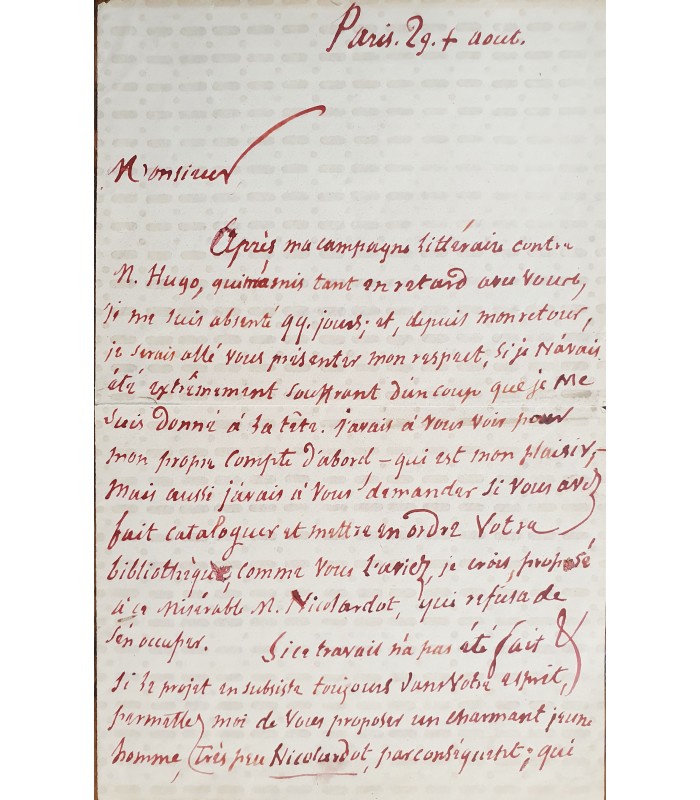 Paris. 29. + aout.
Monsieur
Après ma campagne littéraire contre
M. Hugo, qui m'a mis tant en retard avec vous,
je me suis absenté 99. jours; et, depuis mon retour,
je serais allé vous présenter mon respect, si je n'avais
été extrêmement souffrant d'un coup que je me
suis donné à la tête. j'avais à vous voir pour
mon propre compte d'abord – qui est mon plaisir, –
mais aussi j'avais à vous demander si vous avez
fait cataloguer et mettre en ordre votre
bibliothèque, comme vous l'aviez, je crois, proposé
à ce misérable M. Nicolardot, qui refusa de
s'en occuper.
Si ce travail n'a pas été fait &
si le projet en subsiste toujours dans votre esprit,
permettez moi de vous proposer un charmant jeune
homme, (très peu Nicolardot, par conséquent; qui